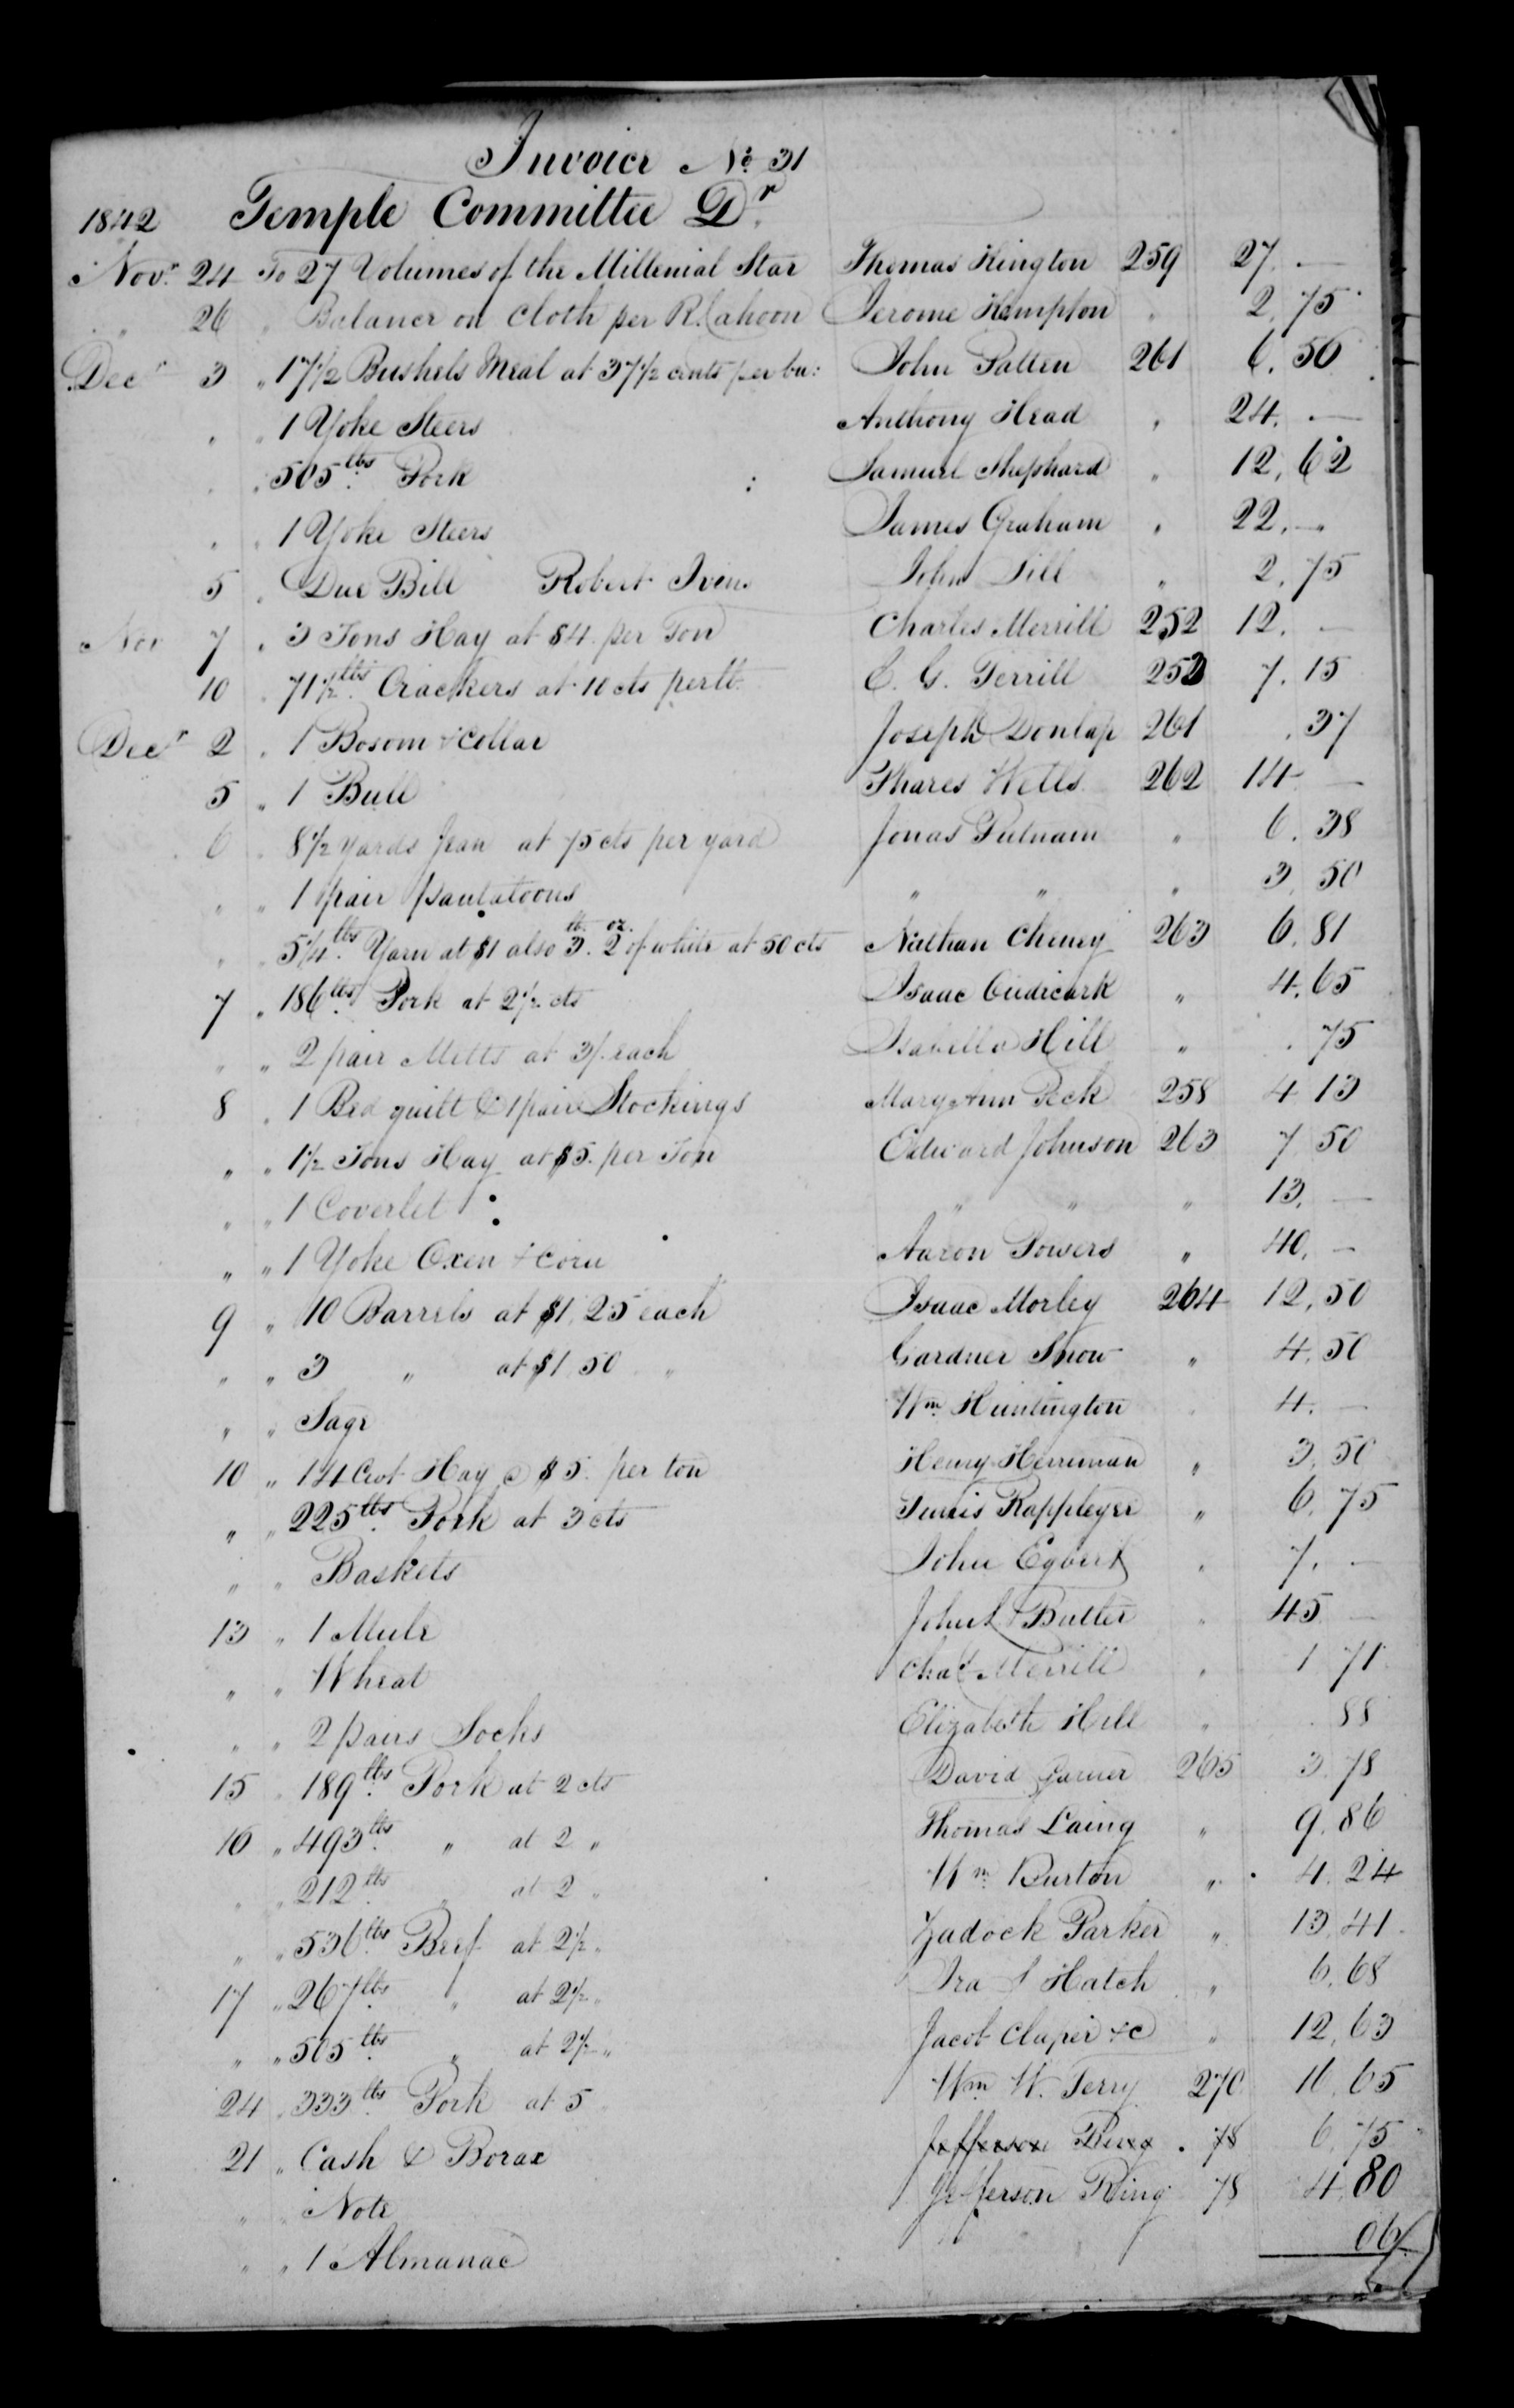 Invoice No. 31
1842 Temple Committee Dr.
Novr. 24 To 27 Volumes of the Millenial Star Thomas Kington 259 27. —
" 26 " Balance on Cloth per R. Cahoon Jerome Kempton " 2,75
Decr 3 " 17 1/2 Bushels Meal at 37 1/2 cents per bu: John Patten 261 6.56
" " 1 Yoke Steers Anthony Head " 24. —
" " 505 lbs. Pork : Samuel Shephard " 12,62
" " 1 Yoke Steers James Graham " 22. —
5 " Due Bill Robert Ivins John Sill " 2,75
Nov 7 " 3 Tons Hay at $4. per Ton Charles Merrill 252 12. —
10 " 71 1/2 lbs. Crackers at 10 cts per lb. C. G. Terrill 253 7.15
Decr 2 " 1 Bosom & Collar Joseph Donlap 261 .37
5 " 1 Bull Phares Wells 262 14 —
6 " 8 1/2 yards Jean at 75 cts per yard Jonas Putnam " 6.38
" " 1 pair pantatoons " " " 3,50
" " 5 1/4 lbs. Yarn at $1 also 3 lb. 2 oz. of white at 50 cts Nathan Cheney 263 6,81
7 " 186 lbs. Pork at 2 1/2 cts Isaac " 4.65
" " 2 pair Mitts at 3/. each Isabella Hill " .75
8 " 1 Bed quilt & 1 pair Stockings Mary Ann Peck 258 4 13
" " 1 1/2 Tons Hay at $5. per Ton Edward Johnson 263 7 50
" " 1 Coverlet " " " 13. —
" " 1 Yoke Oxen & Corn Aaron Powers " 40. —
9 " 10 Barrels at $1,25 each Isaac Morley 264 12,50
" " 3 " at $1,50 " Gardner Snow " 4.50
" " Sage Wm. Huntington " 4. —
10 " 14 Cwt Hay @ $5. per ton Henry Herriman " 3,50
" " 225 lbs. Pork at 3 cts Tunis Rappleyee " 6,75
" " Baskets John Egbert " 7. —
13 " 1 Mule John L Butler " 45 —
" " Wheat Chas Merrill " 1 71
" " 2 pairs Socks Elizabeth Hill " .88
15 " 189 lbs. Pork at 2 cts David Garner 265 3.78
16 " 493 lbs. " at 2 " Thomas Laing " 9.86
" " 212 lbs. " at 2 " Wm. Burton " 4.24
" " 536 lbs. Beef at 2 1/2 " Zadock Parker " 13,41
17 " 267 lbs. " at 2 1/2 " Ira S Hatch " 6,68
" " 505 lbs. " at 2 1/2 " Jacob Claper &c " 12,63
24 " 333 lbs. Pork at 5 " Wm W. Terry 270 16,65
21 " Cash & Borax Jefferson Ring . 78 6.75
" " Note Jefferson Ring 78 4,80
" " 1 Almanac " " 06